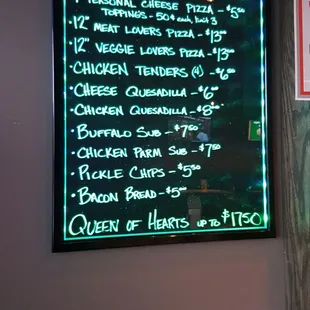 PERSONAL CHEESE PIZZA - $5⁰⁰
TOPPINGS - 50¢ each, limit 3
• 12" MEAT LOVERS PIZZA - $13⁰⁰
• 12" VEGGIE LOVERS PIZZA - $13⁰⁰
• CHICKEN TENDERS (4) - $6⁰⁰
• CHEESE QUESADILLA - $6⁰⁰
• CHICKEN QUESADILLA - $8⁰⁰
• BUFFALO SUB - $7⁵⁰
• CHICKEN PARM SUB - $7⁵⁰
• PICKLE CHIPS - $5⁵⁰
• BACON BREAD - $5⁰⁰
QUEEN OF HEARTS UP TO $1750